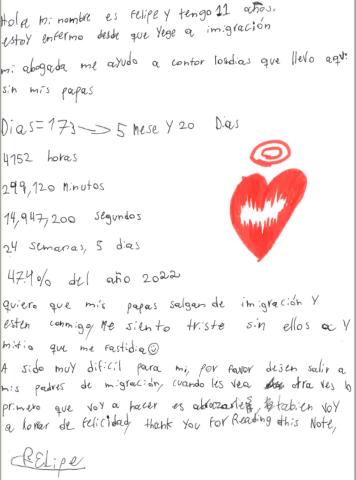 Hola mi nombre es Felipe y tengo 11 años.
estoy enfermo desde que yege a imigración
mi abogada me ayudo a contar los dias que llevo aqui
sin mis papas
Dias=173 → 5 mese y 20 Dias
4152 horas
299,120 minutos
14,947,200 segundos
24 semanas, 5 dias
47.4% del año 2022
quiero que mis papas salgan de imigración y
esten conmigo, me siento triste sin ellos a y
mitia que me fastidia
A sido muy dificil para mi, por favor dejen salir a
mis padres de migración, cuando los vea otra ves lo
primero que voy a hacer es abrazarles, tabien voy
a llorar de felicidad, thank you For Reading this Note,
FELipe